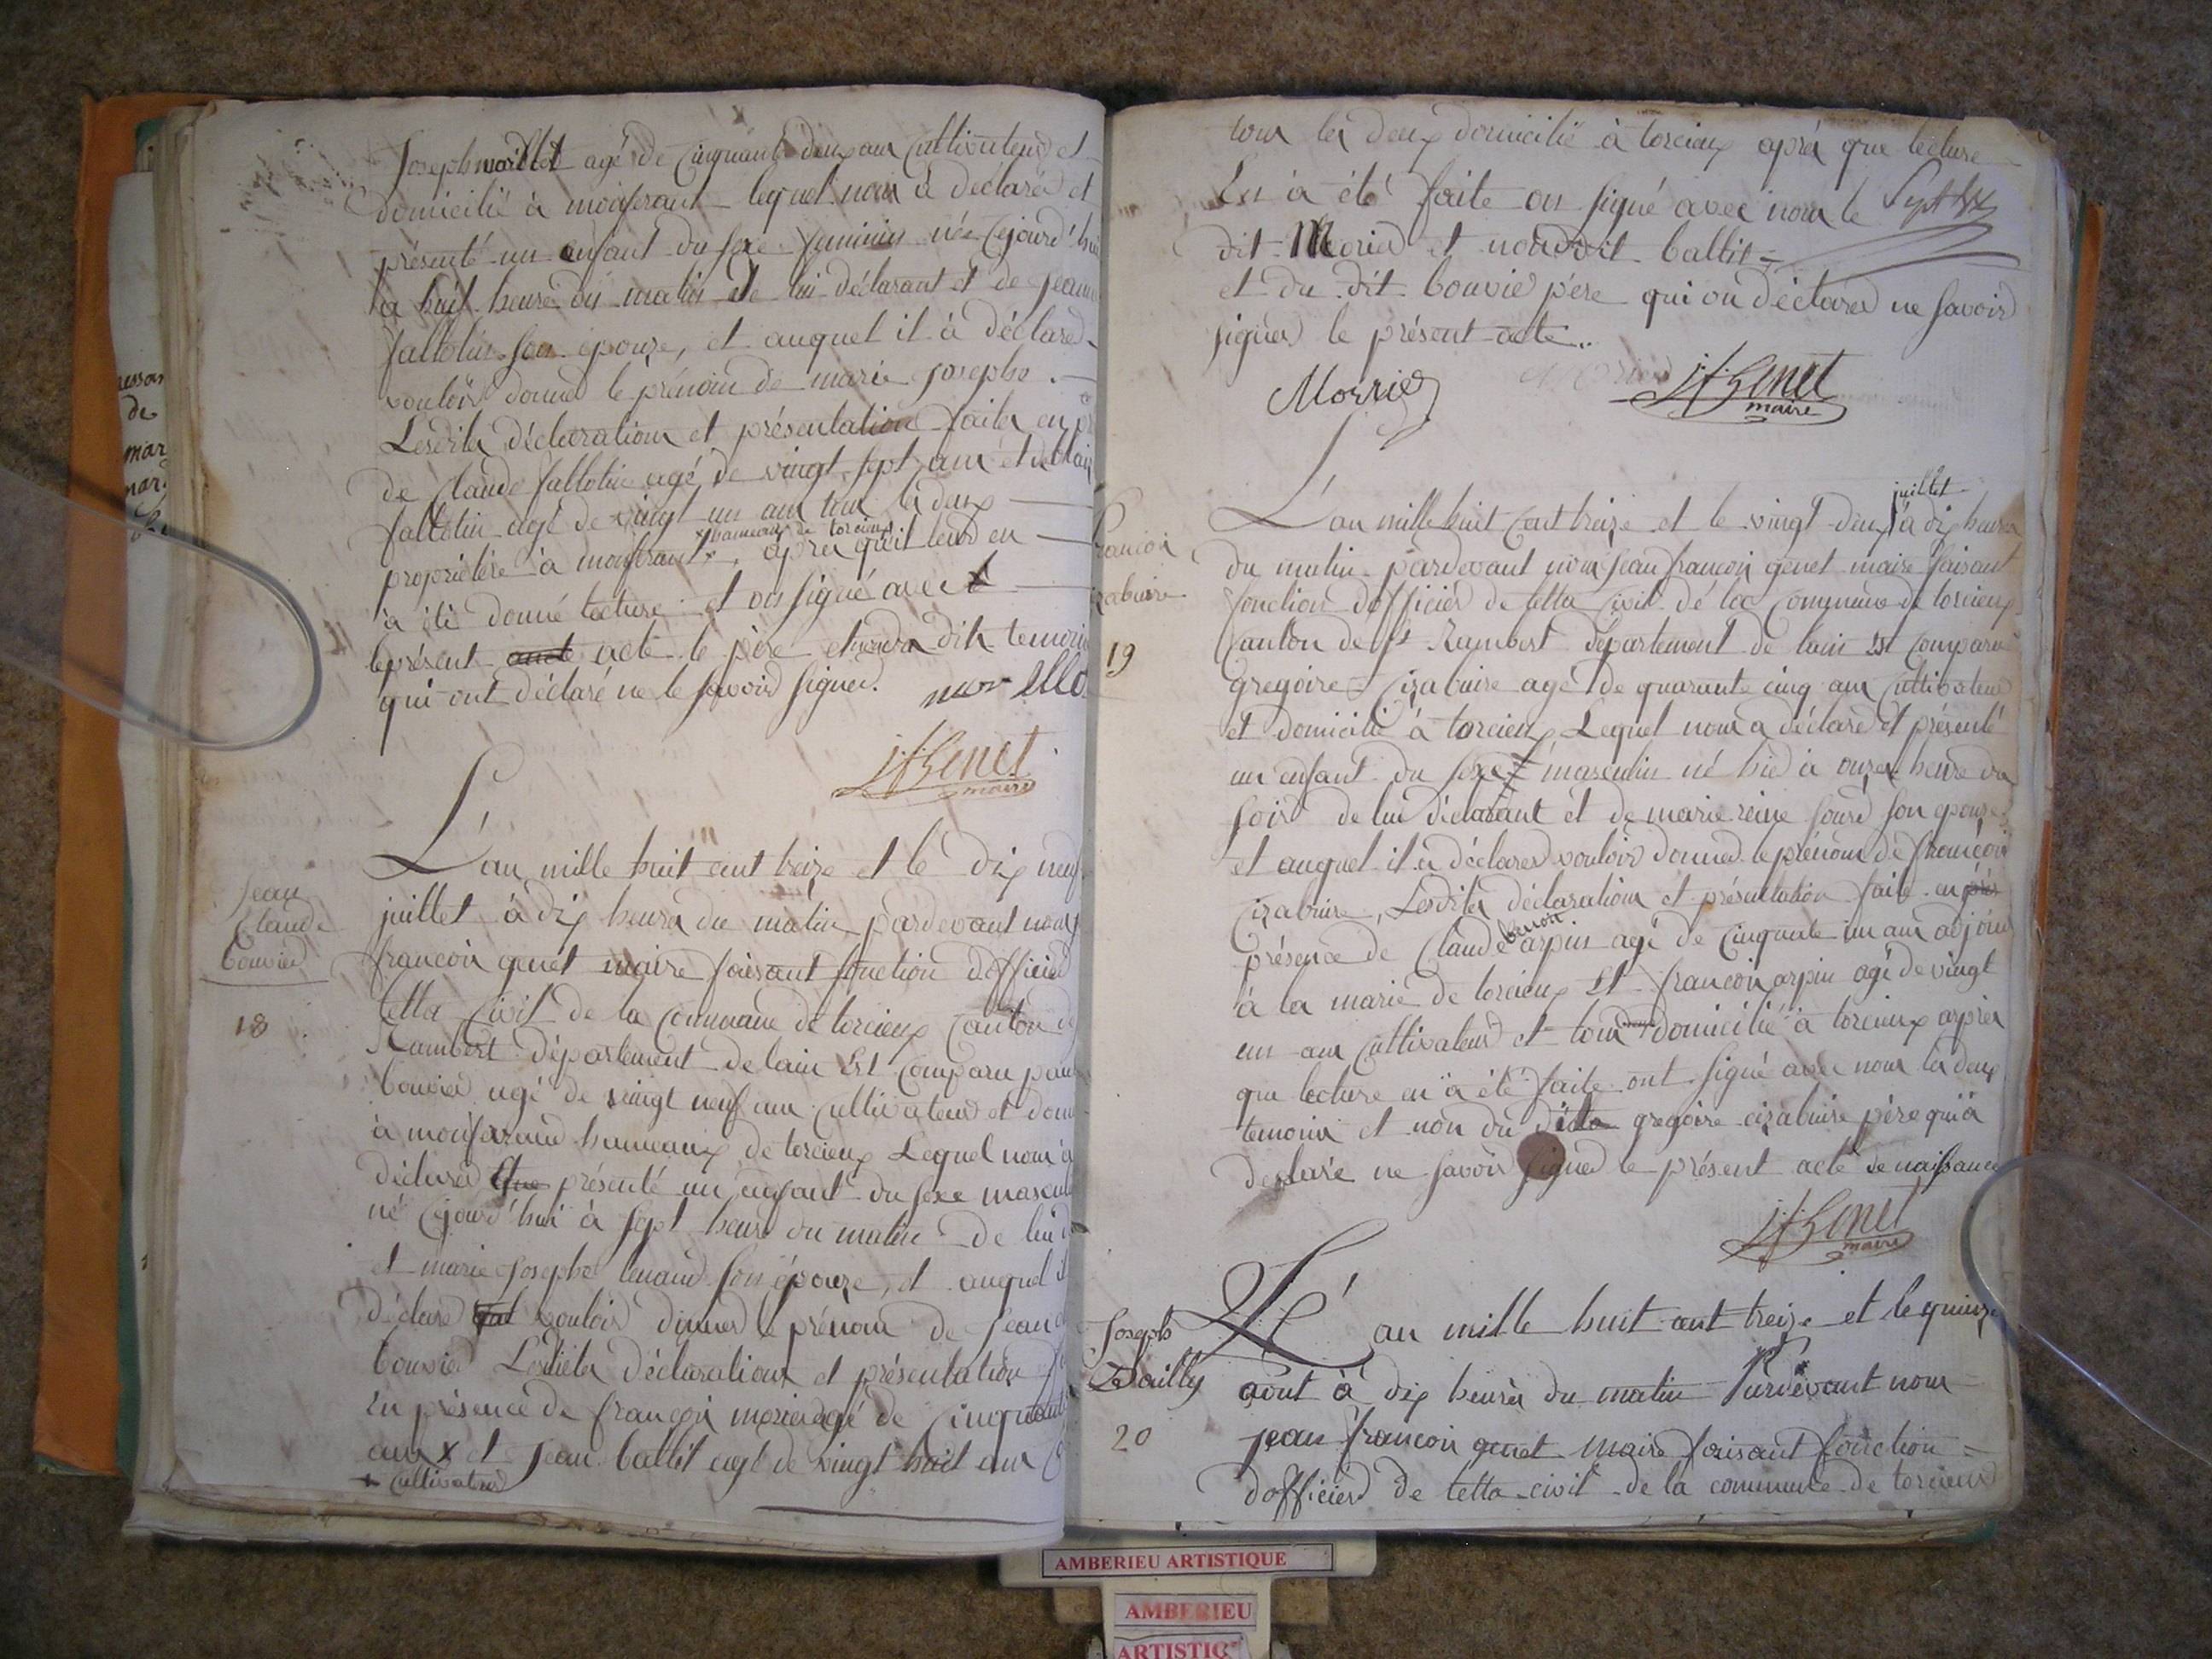 Joseph maillet agé de cinquante deux ans Cultivateur et
domicilié à monferant lequel nous à déclaré et
présenté un enfant du sexe feminin née cejourd'hui
a huit heure du matin de lui déclarant et de jeanne
fallotin son épouze, et auquel il à déclarer
vouloir donner le prénom de marie josephe.
Lesdites déclarations et présentation faites en pr
de Claude fallotin agé de vingt sept ans et de
fallotin agé de vingt un ans tous les deux
hameaux de torcieux
propriétère à monferant, après qu'il leur en
à été donné lecture et on signé avec
le présent acte le père dits temoins
qui ont déclaré ne le savoir signer.
J f Genet
maire
Jean
Claude
bouvier
18
L'an mille huit cent treize et le dix neuf
juillet à dix heures du matin pardevant nous
francois genet maire faisant fonction dofficier
letta Civil de la Commune de torcieux Canton de
Rambert département de lain Est Comparu
bouvier agé de vingt neuf ans Cultivateur et domi
à monferand hameaux de torcieux Lequel nous à
déclarer présenté un enfant du sexe mascul
né cejourd'hui à sept heure du matin de lui d
et marie Josephe lenaud son épouze, et auquel il
déclaré vouloir donner le prénom de Jean
bouvier Lesdites déclarations et présentation
En présence de francois morier agé de cinquante
ans x et Jean ballit agé de vingt huit ans
+ Cultivateur
tous les deux domicilié à torcieux après que lecture
En à été faite on signé avec nous le
dit Morier et non dit ballit =
et du dit bouvié père qui on déclarer ne savoir
signer le présent acte..
Morrier
J f Genet
maire
francois
cizabuire
19
juillet
L'an mille huit cent treize et le vingt deux à dix heures
du matin pardevant nous jean francois genet maire faisant
fonction dofficier de letta Civil dé la Commune de torcieux
Canton de St Rambert département de lain Est Comparu
gregoire Cizabuire agé de quarante cinq ans Cultivateur
et domicilié à torcieux Lequel nous a déclaré et présenté
un enfant du sexe masculin né hier à onze heure du
soir de lui déclarant et de marie reine sourd son epouze
et auquel il à déclarer vouloir donner le prénom de francois
Cizabuire, Lesdites déclarations et présentation faite en prés
benoit
présence de Claude arpin agé de cinquante un ans adjoin
à la marie de torcieux Et francois arpin agé de vingt
un ans Cultivateur et tous deux domicilié à torcieux aprèr
que lecture en à été faite ont signé avec nous les deux
temoins et non du dit gregoire cizabuire père qui à
declaré ne savoir signer le présent acte de naissance
J f Genet
maire
Joseph
Dailly
20
L'an mille huit cent treize et le quinze
août à dix heures du matin Pardevant nous
jean francois genet maire faisant fonction =
dofficier de letta civil de la commune de torcieux
AMBERIEU ARTISTIQUE
AMBERIEU
ARTISTIQ